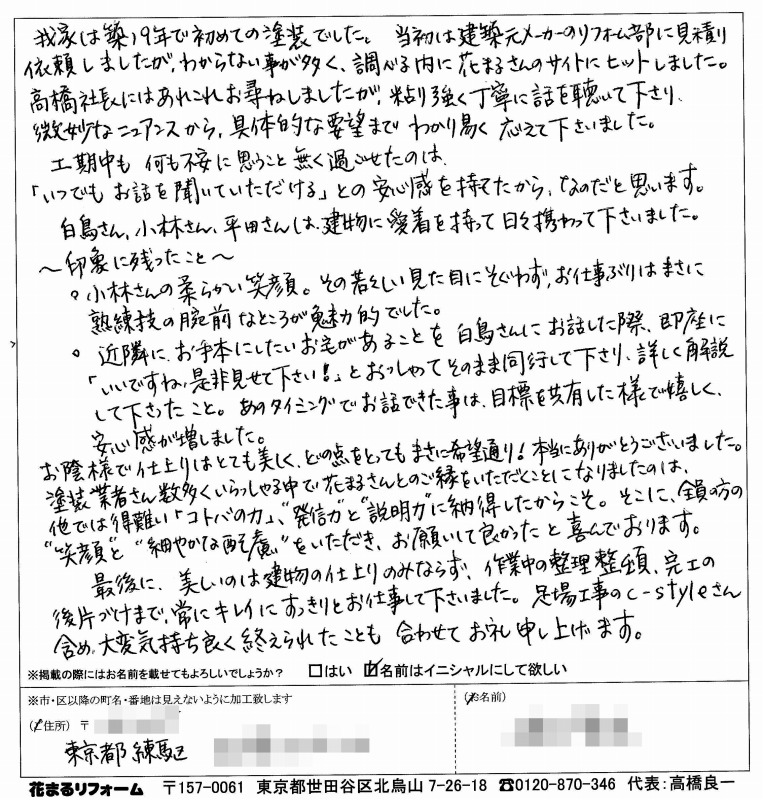 我家は築19年で初めての塗装でした。当初は建築元メーカーのリフォーム部に見積り
依頼しましたが、わからない事が多く、調べる内に花まるさんのサイトにヒットしました。
高橋社長にはあれこれお尋ねしましたが、粘り強く丁寧に話を聴いて下さり、
微妙なニュアンスから、具体的な要望までわかり易く応えて下さいました。
工期中も何も不安に思うこと無く過ごせたのは、
「いつでもお話を聞いていただける」との安心感を持てたから、なのだと思います。
白鳥さん、小林さん、平田さんは、建物に愛着を持って日々携わって下さいました。
〜印象に残ったこと〜
。小林さんの柔らかい笑顔。その若々しい見た目にそぐわず、お仕事ぶりはまさに
熟練技の腕前なところが魅力的でした。
。近隣に、お手本にしたいお宅があることを白鳥さんにお話した際、即座に
「いいですね、是非見せて下さい!」とおっしゃってそのまま同行して下さり、詳しく解説
して下さったこと。あのタイミングでお話できた事は、目標を共有した様で嬉しく、
安心感が増しました。
お陰様で仕上りはとても美しく、どの点をとってもまさに希望通り!本当にありがとうございました。
塗装業者さん数多くいらっしゃる中で花まるさんとのご縁をいただくことになりましたのは、
他では得難い「コトバの力」、“発信力”と“説明力”に納得したからこそ。そこに、全員の方の
“笑顔”と“細やかな配慮”をいただき、お願いして良かったと喜んでおります。
最後に、美しいのは建物の仕上りのみならず、作業中の整理整頓、完工の
後片づけまで、常にキレイにすっきりとお仕事して下さいました。足場工事のc-styleさん
含め、大変気持ち良く終えられたことも合わせてお礼申し上げます。
※掲載の際にはお名前を載せてもよろしいでしょうか? □はい ☑名前はイニシャルにして欲しい
※市・区以降の町名・番地は見えないように加工致します
(ご住所) 〒
東京都練馬区
(お名前)
花まるリフォーム 〒157-0061 東京都世田谷区北烏山7-26-18 ☎0120-870-346 代表:高橋良一